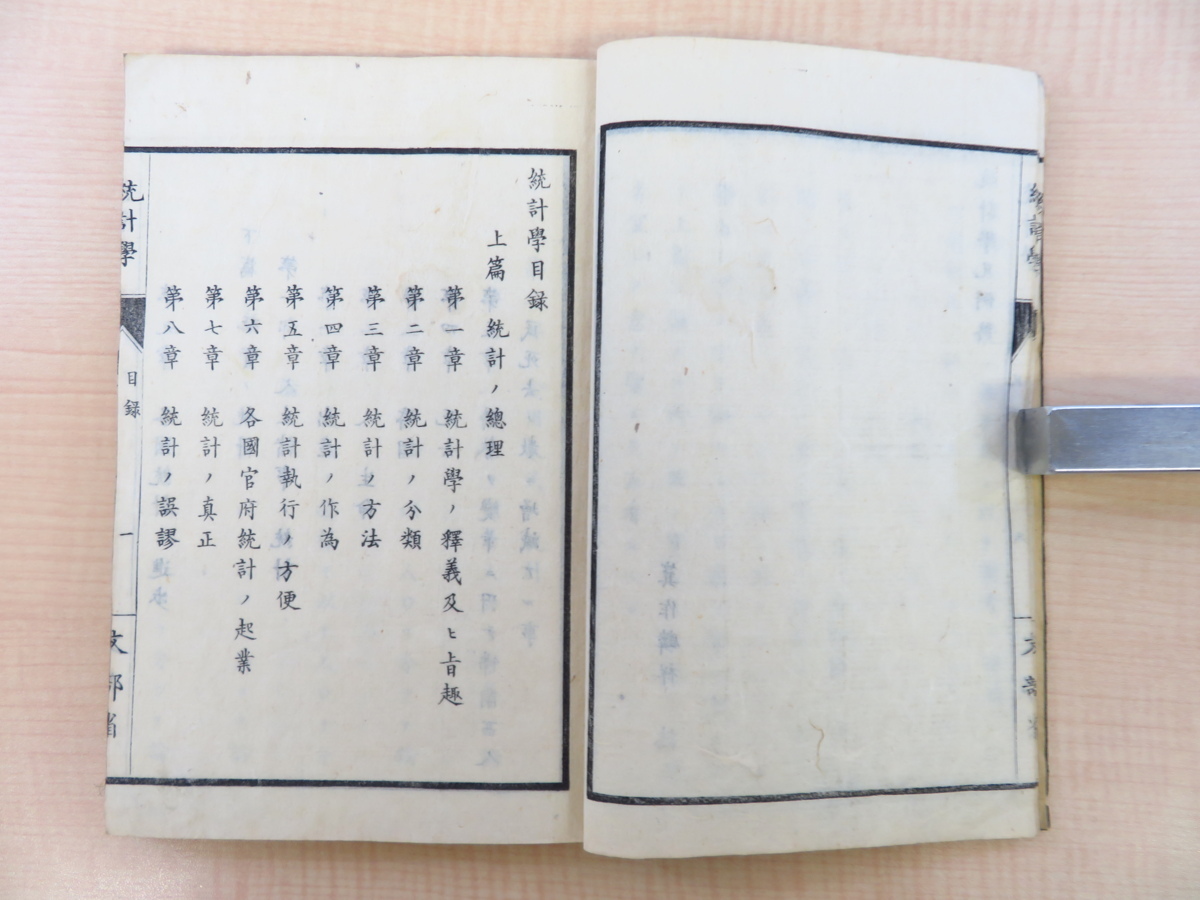 統計學目録
上篇 統計ノ總理
第一章 統計學ノ釋義及ヒ旨趣
第二章 統計ノ分類
第三章 統計ノ方法
第四章 統計ノ作為
第五章 統計執行ノ方便
第六章 各國官府統計ノ起業
第七章 統計ノ真正
第八章 統計ノ誤謬
統計學
目録
一
文部省